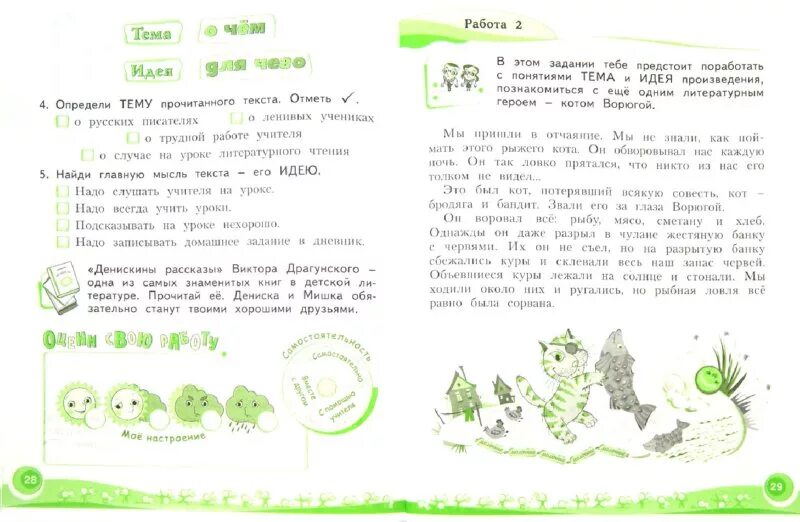 Тема о чём
Идея для чего
4. Определи ТЕМУ прочитанного текста. Отметь ✓.
о русских писателях о ленивых учениках
о трудной работе учителя
о случае на уроке литературного чтения
5. Найди главную мысль текста – его ИДЕЮ.
Надо слушать учителя на уроке.
Надо всегда учить уроки.
Подсказывать на уроке нехорошо.
Надо записывать домашнее задание в дневник.
«Денискины рассказы» Виктора Драгунского –
одна из самых знаменитых книг в детской ли-
тературе. Прочитай её. Дениска и Мишка обя-
зательно станут твоими хорошими друзьями.
Оцени свою работу
Самостоятельность
Самостоятельно
Вместе
с другом
С помощью
учителя
Моё настроение
28
Работа 2
В этом задании тебе предстоит поработать
с понятиями ТЕМА и ИДЕЯ произведения,
познакомиться с ещё одним литературным
героем – котом Ворюгой.
Мы пришли в отчаяние. Мы не знали, как пой-
мать этого рыжего кота. Он обворовывал нас каждую
ночь. Он так ловко прятался, что никто из нас его
толком не видел...
Это был кот, потерявший всякую совесть, кот –
бродяга и бандит. Звали его за глаза Ворюгой.
Он воровал всё: рыбу, мясо, сметану и хлеб.
Однажды он даже разрыл в чулане жестяную банку
с червями. Их он не съел, но на разрытую банку
сбежались куры и склевали весь наш запас червей.
Объевшиеся куры лежали на солнце и стонали. Мы
ходили около них и ругались, но рыбная ловля всё
равно была сорвана.
29